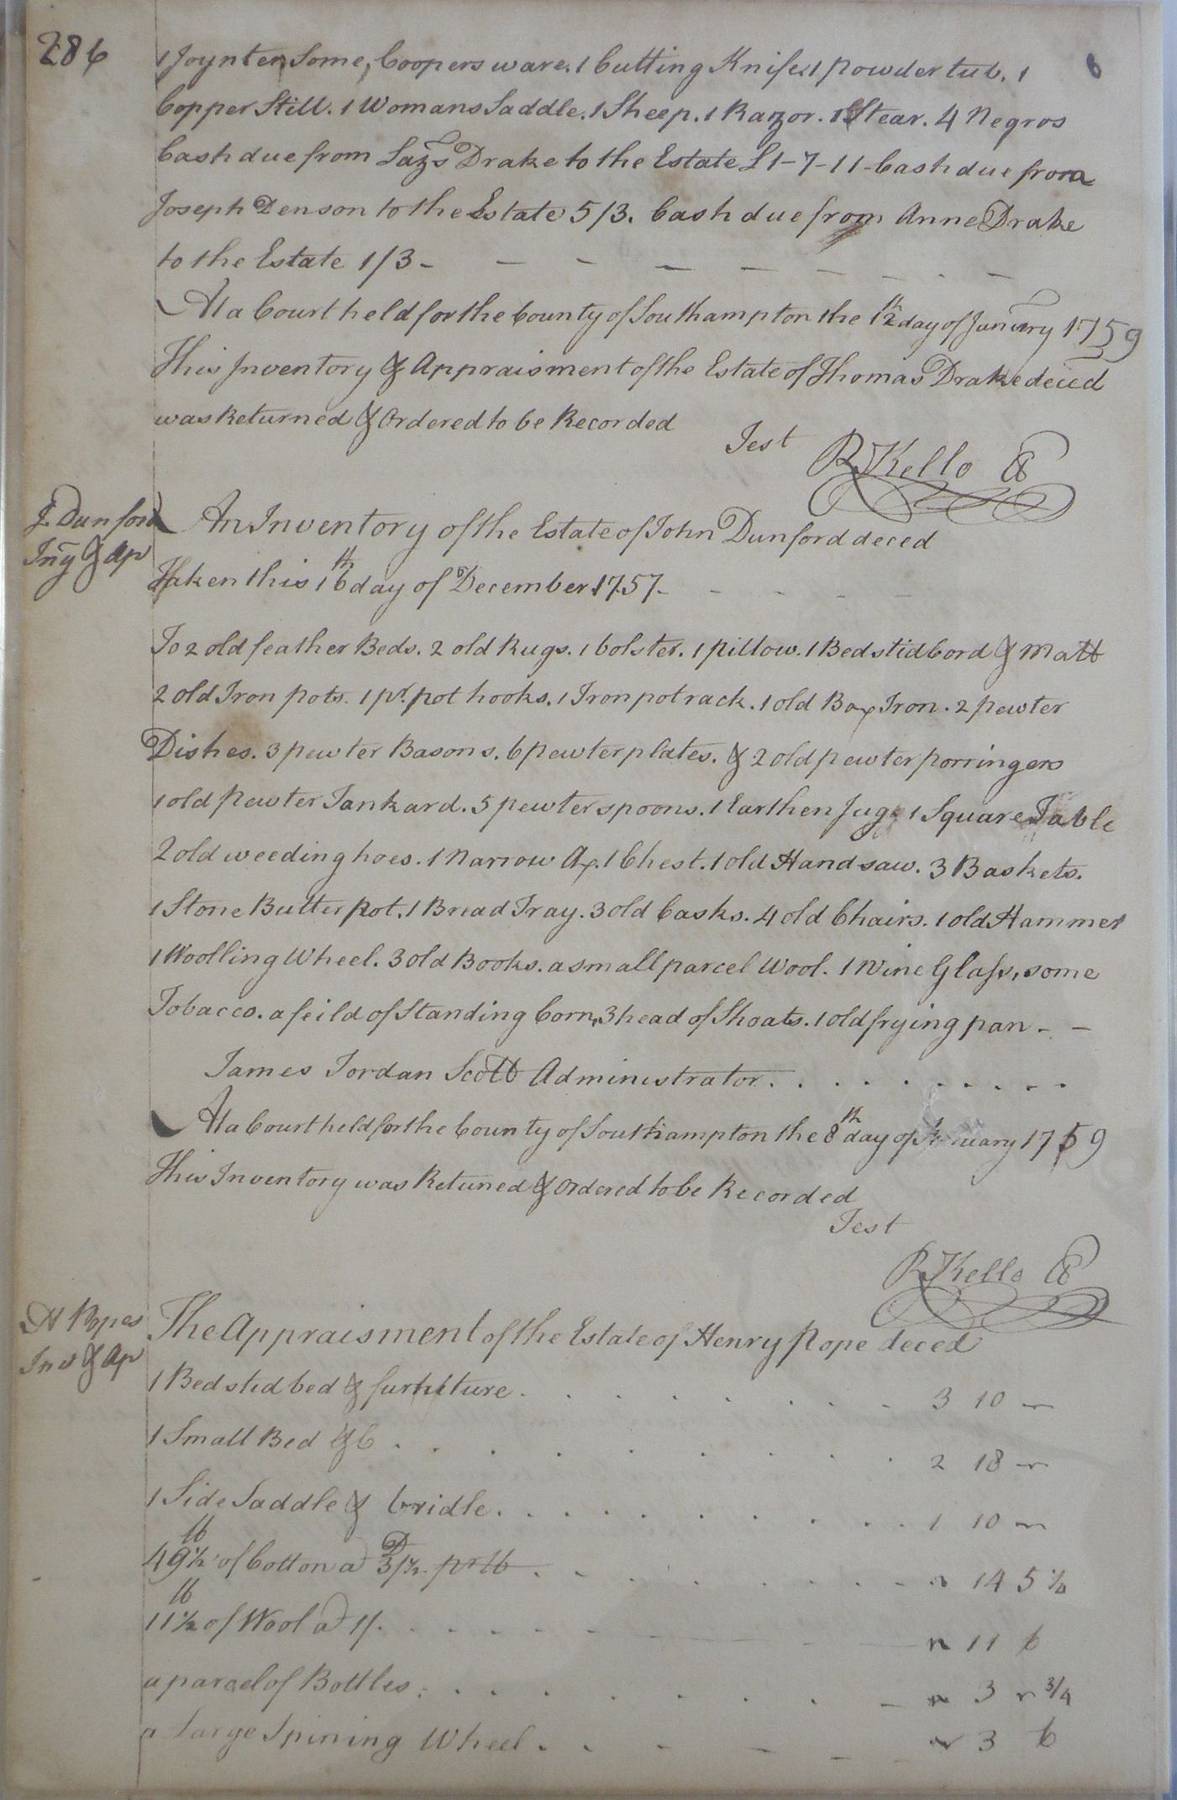 286
1 Joynter, Some, Coopers ware. 1 Cutting Knife. 1 powder tub. 1
Copper Still. 1 Womans Saddle. 1 Sheep. 1 Razor. 1 Stear. 4 Negros
Cash due from Lazs Drake to the Estate £1-7-11- Cash due from
Joseph Denson to the Estate 5/3. Cash due from Anne Drake
to the Estate 1/3 -
At a Court held for the County of Southampton the 12th day of January 1759
This Inventory & Appraisment of the Estate of Thomas Drake deced
was Returned & Ordered to be Recorded
Test
R Kello
J. Dunford
Iny & Ap
An Inventory of the Estate of John Dunford deced
Taken this 16th day of December 1757 -
To 2 old feather Beds. 2 old Rugs. 1 bolster. 1 pillow. 1 Bedstid Cord & Matt
2 old Iron pots. 1 pr. pot hooks. 1 Iron potrack. 1 old Box Iron. 2 pewter
Dishes. 3 pewter Basons. 6 pewter plates. & 2 old pewter porringers
1 old Pewter Tankard. 5 pewter spoons. 1 Earthen Jug. 1 Square Table
2 old weeding hoes. 1 Narrow Ax. 1 Chest. 1 old Handsaw. 3 Baskets.
1 Stone Butter pot. 1 Bread Tray. 3 old Casks. 4 old Chairs. 1 old Hammer
1 Woolling Wheel. 3 old Books. a small parcel Wool. 1 Wine Glass, some
Tobacco. a feild of Standing Corn, 3 head of Shoats. 1 old frying pan - -
James Jordan Scott Administrator.
At a Court held for the County of Southampton the 8th day of 1759
This Inventory was Retuned & Ordered to be Recorded
Test
R Kello
H Popes
Inv & Ap
The Appraisment of the Estate of Henry Pope deced
1 Bedstid bed & furniture. 3 10 -
1 Small Bed &C. 2 18 -
1 Side Saddle & bridle. 1 10 -
49½ lb of Cotton a 3½D pr lb. " 14 5¼
11½ lb of Wool a 1/. " 11 6
a parcel of Bottles. " 3 " ¾
a large Spining Wheel. " 3 6